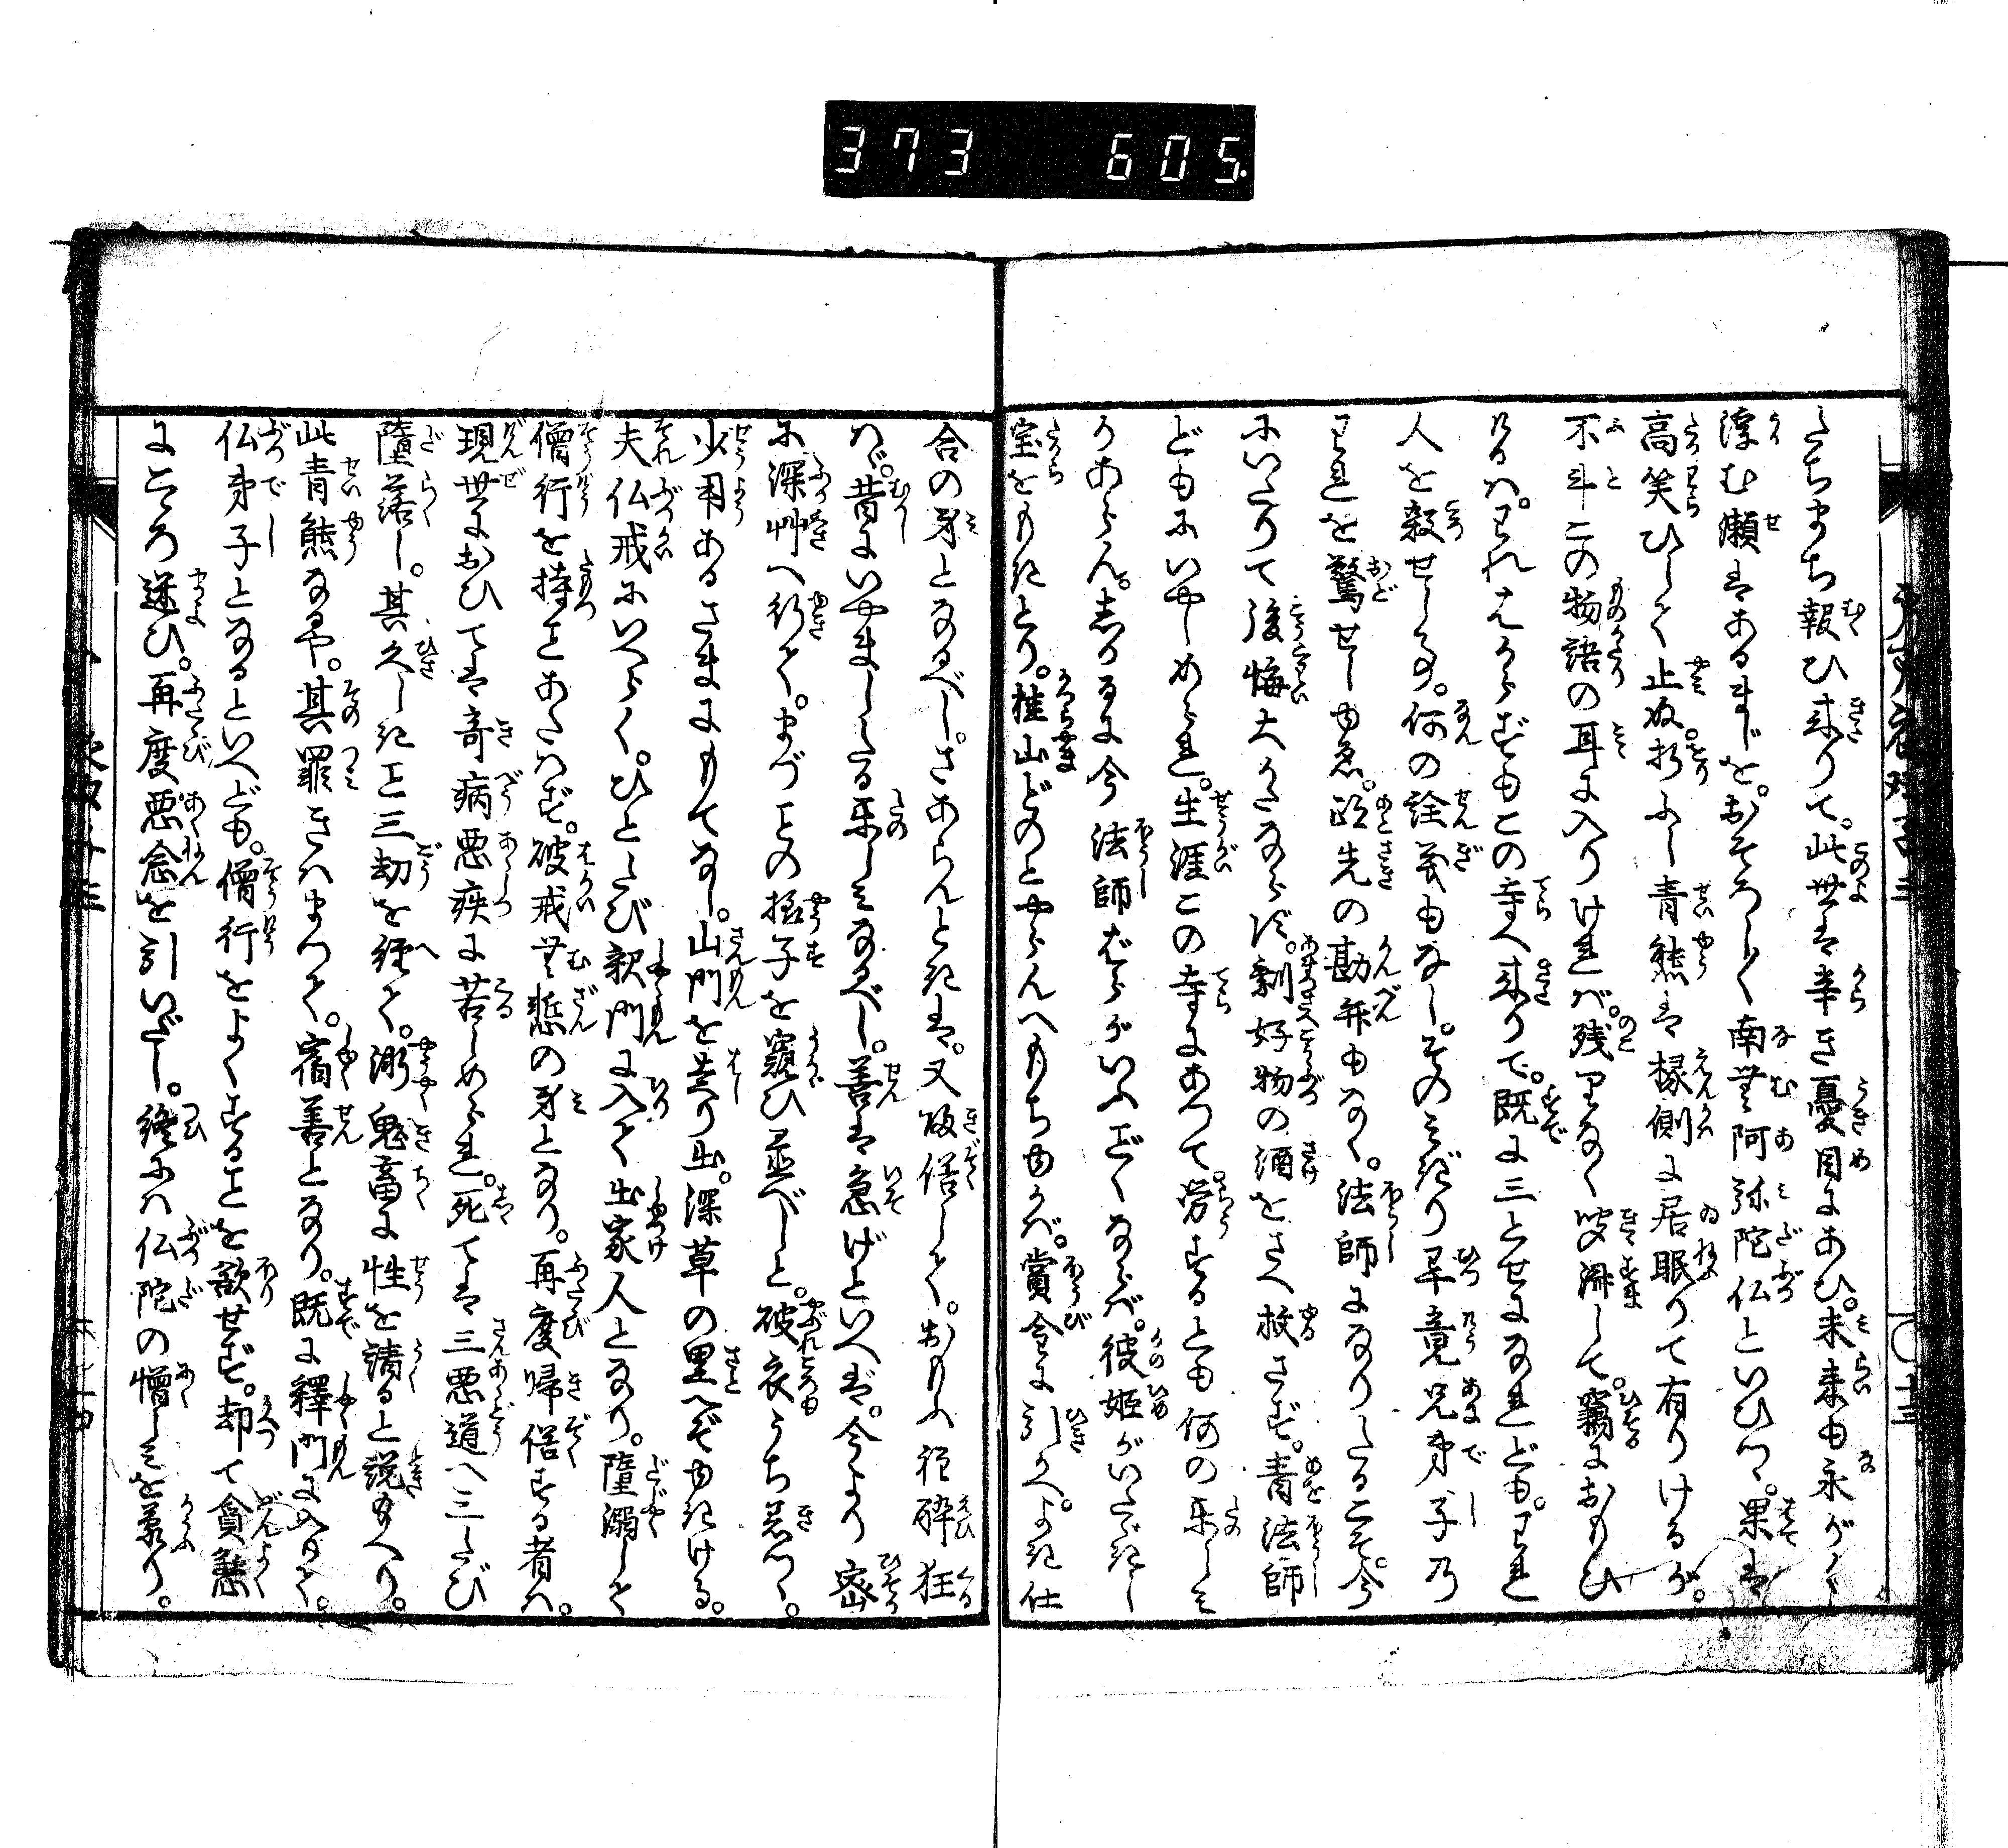 373 605.
たちまち報ひ来りて。此世は辛き憂目にあひ。未来も永がく
浮む瀬はあるまじを。おそろしく南無阿弥陀仏といひつ。果は
高笑ひして止ぬ。折ふし青熊は椽側に居眠りて有りけるが。
不斗この物語の耳に入りければ。残りなく皮済して。竊におもひ
けるは。われはからずもこの寺へ来りて。既に三とせになれども。われ
人を殺せしのみ。何の詮義もなし。そのみぎり畢竟兄弟子の
われを驚せしゆゑ。跡先の勘弁もなく。法師になりたるこそ。今
にいたりて後悔大かたならず。剰好物の酒をさへ赦さず。青法師
どもにいやしめられ。生涯この寺にあつて。労するとも何の楽しみ
かあらん。しかるに今法師ばらがいふ如くならば。彼姫がいだきし
宝をもたり。桂山どのとやらんへもちゆかば。賞金に引かへ。よき仕
合の身となるべし。さあらんときは。又皈俗して。おもふ程酔狂
はゞ。昔にいやましたる楽しみなるべし。善は急げといへば。今より密
に深艸へ行て。まづ其の様子を窺ひ並べしと。破衣うち着つゝ。
少用あるさまにもてなし。山門を走り出。深草の里へぞゆきける。
夫仏戒にいはく。ひとたび釈門に入て出家人となり。堕溺して
僧行を持ことあたはず。破戒無慙の身となり。再度帰俗する者は。
現世においては奇病悪疾に苦しめられ。死ては三悪道へ三たび
墮落し。其久しきこと三劫を経て。漸鬼畜に性を請ると説給へり。
此青熊なるや。其罪きはまつて。宿善となり。既に釋門に入りて。
仏弟子となるといへども。僧行をよくすることを欲せず。却て貪慾
にこころ迷ひ。再度悪念を引いだし。終には仏陀の憎しみを蒙り。